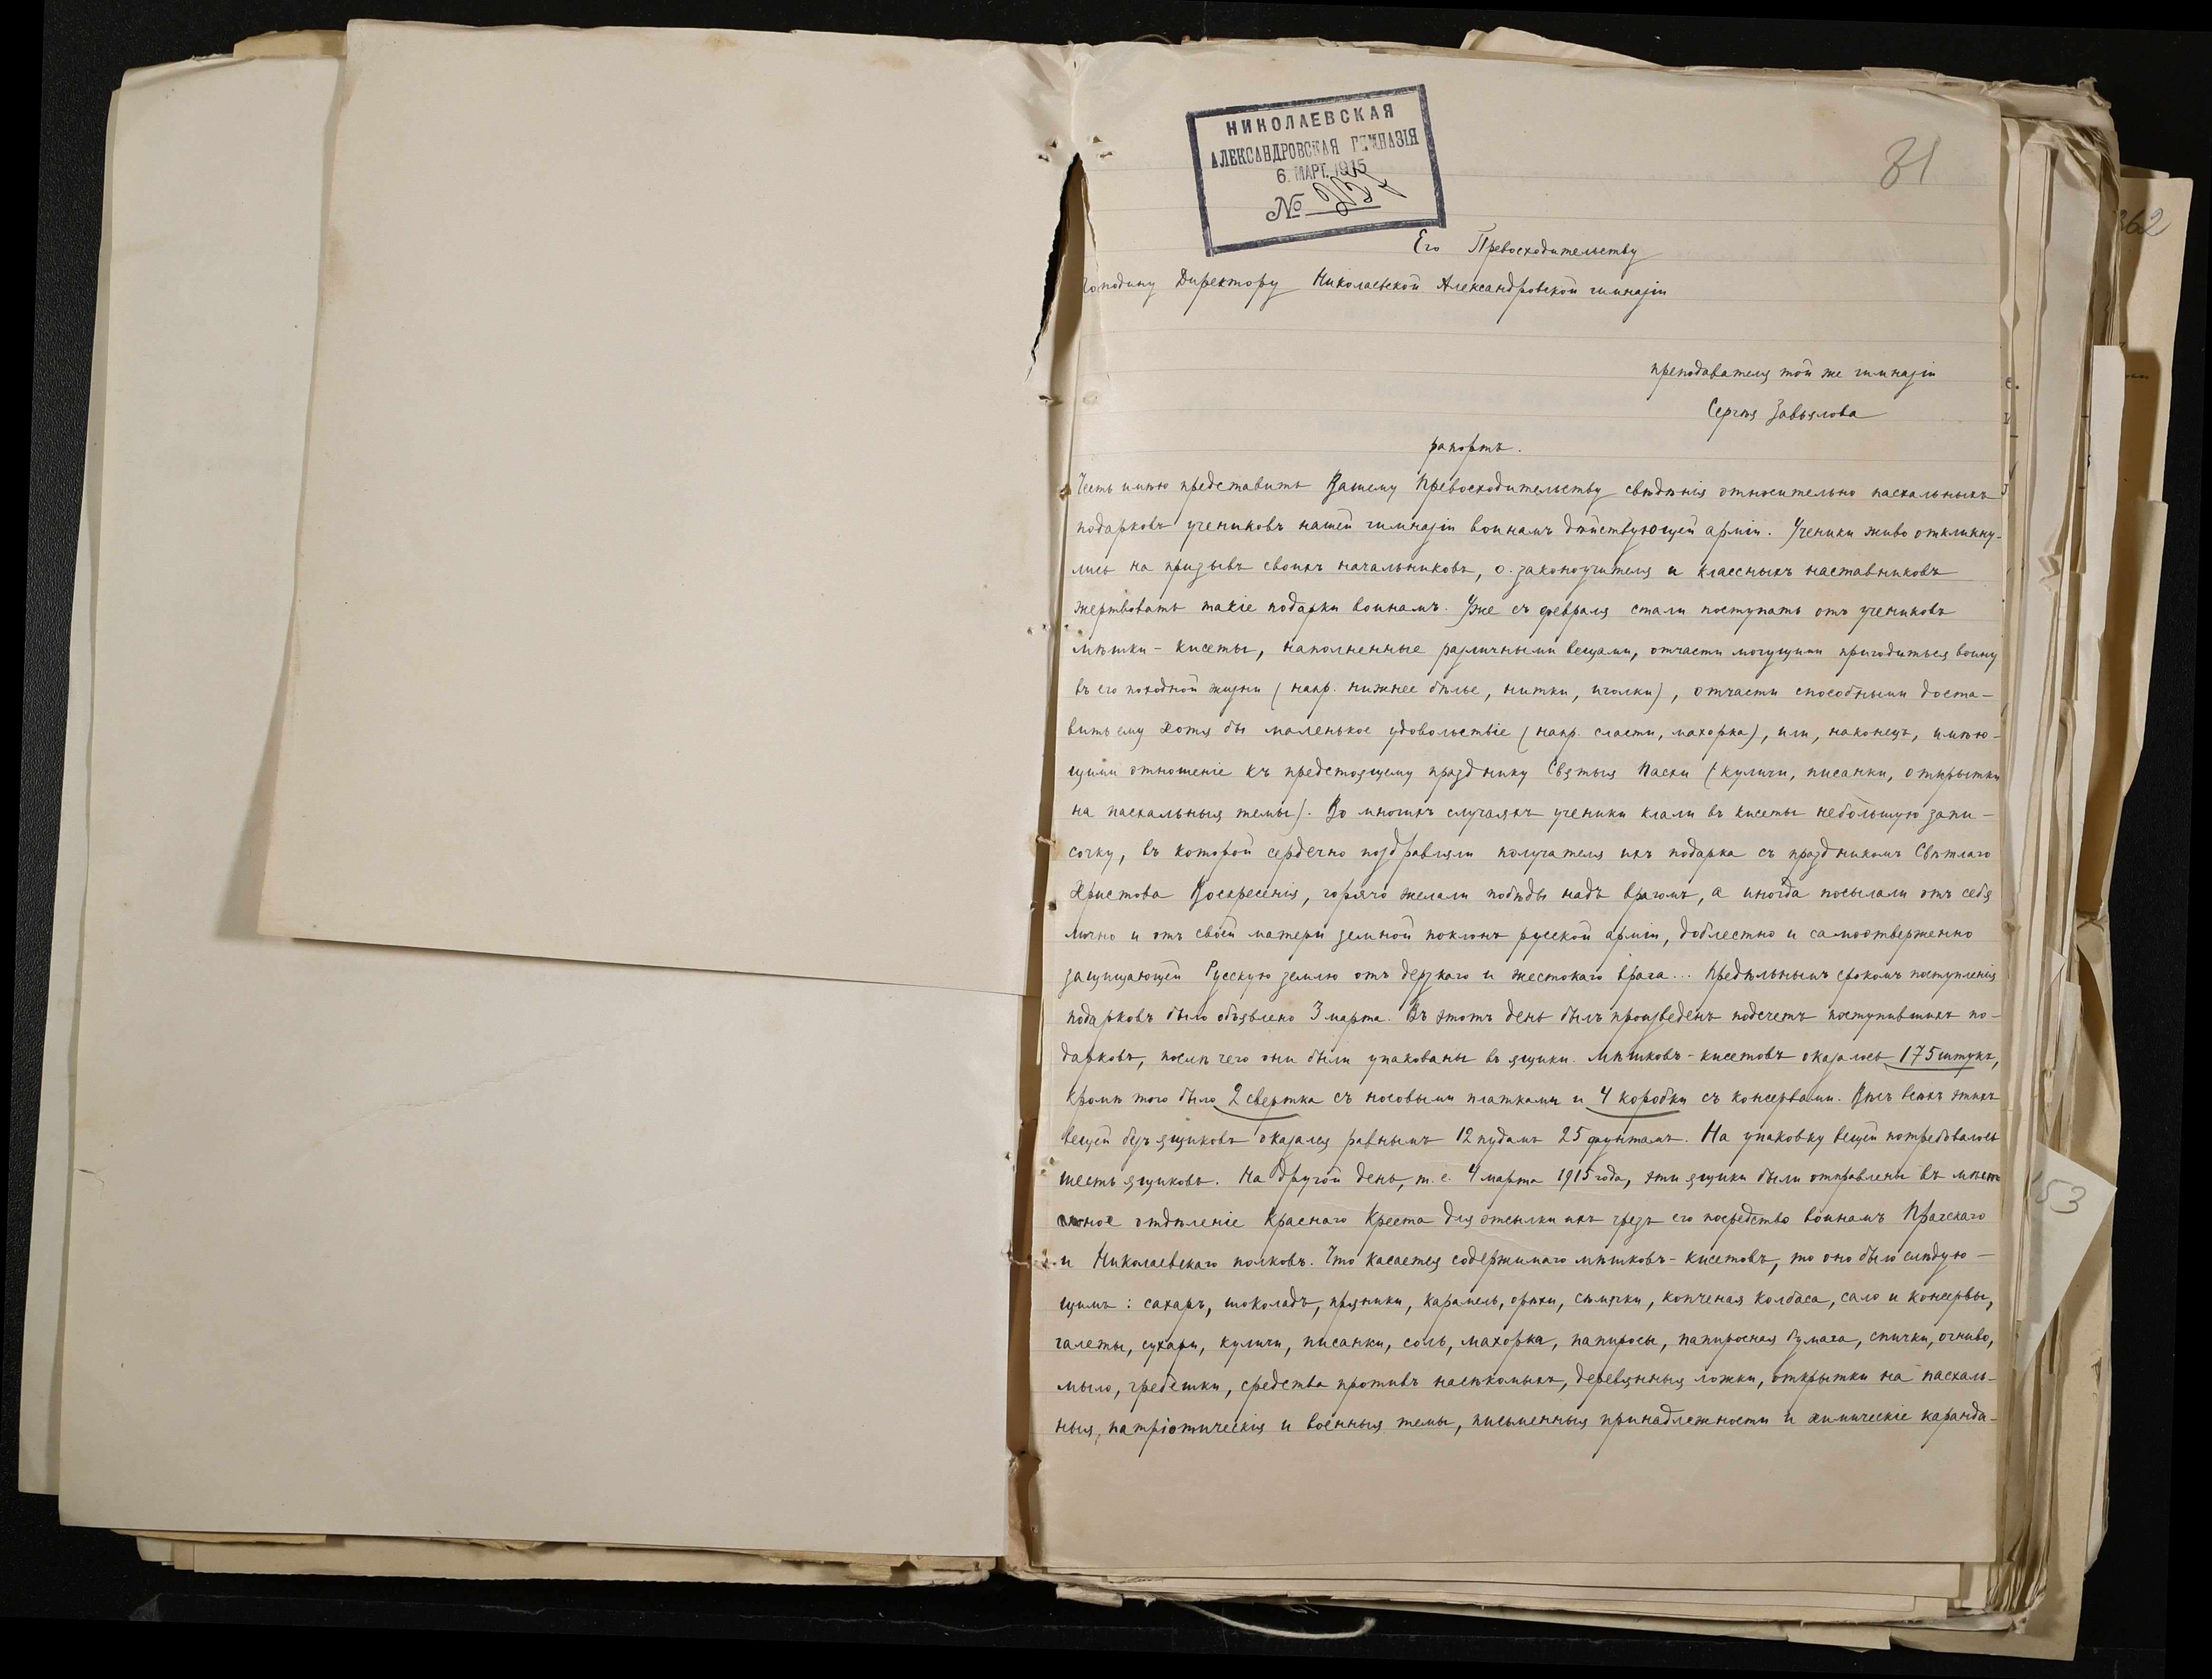 НИКОЛАЕВСКАЯ
АЛЕКСАНДРОВСКАЯ ГИМНАЗІЯ
6. МАРТ. 1915
№
31
Его Превосходительству
Господину Директору Николаевской Александровской гимназіи
преподавателя той же гимназіи
Сергѣя Завьялова
рапортъ.
Честь имѣю представить Вашему Превосходительству свѣдѣнія относительно пасхальныхъ
подарковъ учениковъ нашей гимназіи воинамъ дѣйствующей арміи. Ученики живо откликну-
лись на призывъ своихъ начальниковъ, о. законоучителя и классныхъ наставниковъ
жертвовать такіе подарки воинамъ. Уже съ февраля стали поступать отъ учениковъ
мѣшки-кисеты, наполненные различными вещами, отчасти могущими пригодиться воину
въ его походной жизни (напр. нижнее бѣлье, нитки, иголки), отчасти способными доста-
вить ему хотя бы маленькое удовольствіе (напр. сласти, махорка), или, наконецъ, имѣю-
щими отношеніе къ предстоящему празднику Святыя Пасхи (куличи, писанки, открытки
на пасхальныя темы). Во многихъ случаяхъ ученики клали въ кисеты небольшую запи-
сочку, въ которой сердечно поздравляли получателя ихъ подарка съ праздникомъ Свѣтлаго
Христова Воскресенія, горячо желали побѣды надъ врагомъ, а иногда посылали отъ себя
лично и отъ своей матери земной поклонъ русской арміи, доблестно и самоотверженно
защищающей Русскую землю отъ дерзкаго и жестокаго врага... Предѣльнымъ срокомъ поступленія
подарковъ было объявлено 3 марта. Въ этотъ день былъ произведенъ подсчетъ поступившихъ по-
дарковъ, послѣ чего они были упакованы въ ящики. Мѣшковъ-кисетовъ оказалось 175 штукъ,
кромѣ того было 2 свертка съ носовыми платками и 4 коробки съ консервами. Вѣсъ всѣхъ этихъ
вещей безъ ящиковъ оказался равнымъ 12 пудамъ 25 фунтамъ. На упаковку вещей потребовалось
шесть ящиковъ. На другой день, т. е. 4 марта 1915 года, эти ящики были отправлены въ мѣст
ное отдѣленіе Краснаго Креста для отсылки ихъ чрезъ его посредство воинамъ Прагскаго
и Николаевскаго полковъ. Что касается содержимаго мѣшковъ-кисетовъ, то оно было слѣдую-
щимъ: сахаръ, шоколадъ, пряники, карамель, орѣхи, сѣмячки, копченая колбаса, сало и консервы,
галеты, сухари, куличи, писанки, соль, махорка, папиросы, папиросная бумага, спички, огниво,
мыло, гребешки, средства противъ насѣкомыхъ, деревянныя ложки, открытки на пасхаль-
ныя, патріотическія и военныя темы, письменныя принадлежности и химическіе каранда-
362
153